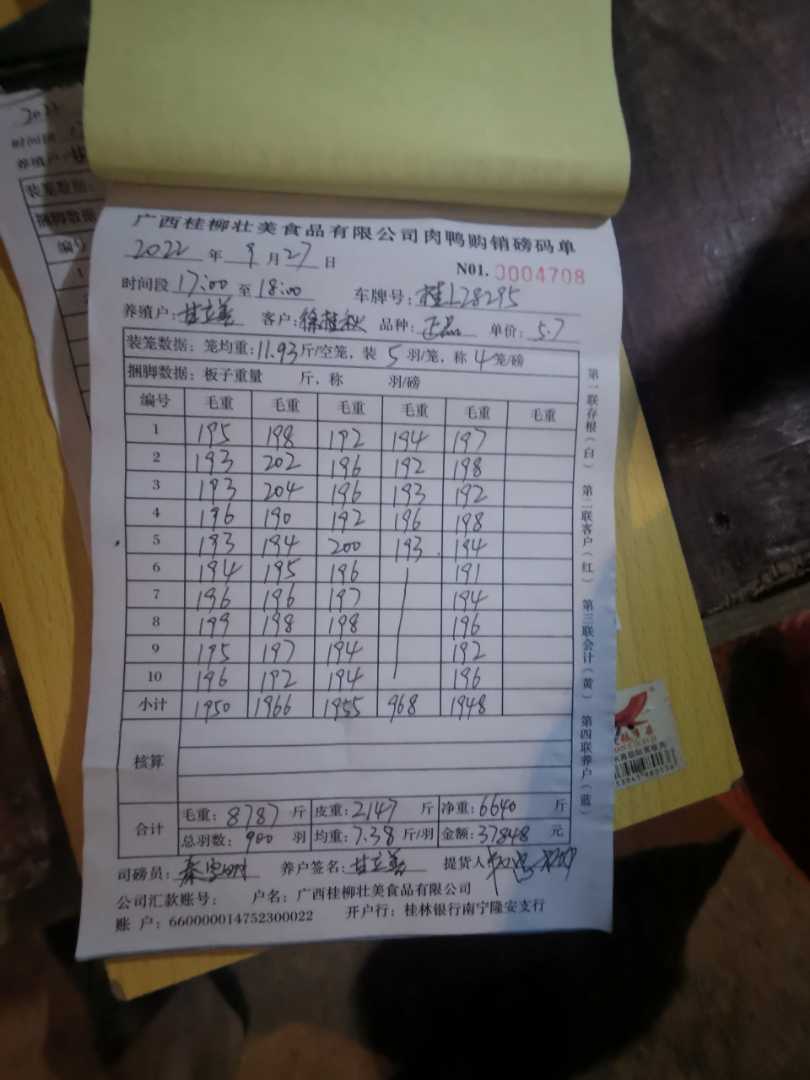 2022
时间段
养殖户:
装笼数据:
捆脚数据
编号
1
广西桂柳壮美食品有限公司肉鸭购销磅码单
2022 年 9 月 27 日 N01. 0004708
时间段 17:00 至 18:00 车牌号: 桂L28295
养殖户: 甘立善 客户: 徐桂秋 品种: 正品 单价: 5.7
装笼数据: 笼均重: 11.93 斤/空笼, 装 5 羽/笼, 称 4 笼/磅
捆脚数据: 板子重量 斤, 称 羽/磅
编号 毛重 毛重 毛重 毛重 毛重 毛重
1 195 198 192 194 197
2 193 202 196 192 198
3 193 204 196 193 192
4 196 190 192 196 198
5 193 194 200 193 194
6 194 195 196 191
7 196 196 197 194
8 199 198 198 196
9 195 197 194 192
10 196 192 194 196
小计 1950 1966 1955 968 1948
核算
合计 毛重: 8787 斤 皮重: 2147 斤 净重: 6640 斤
总羽数: 900 羽 均重: 7.38 斤/羽 金额: 37848 元
司磅员: 养户签名: 甘立善 提货人
公司汇款账号: 户名: 广西桂柳壮美食品有限公司
账 户: 660000014752300022 开户行: 桂林银行南宁隆安支行
第一联存根(白) 第二联客户(红) 第三联会计(黄) 第四联养户(蓝)